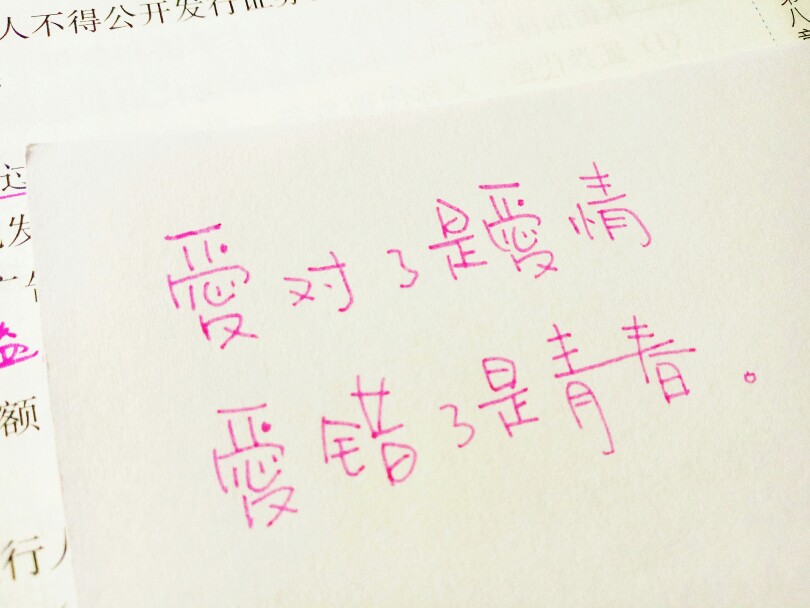 人不得公开发行证券
发
额
行人
愛对了是愛情
愛错了是青春。